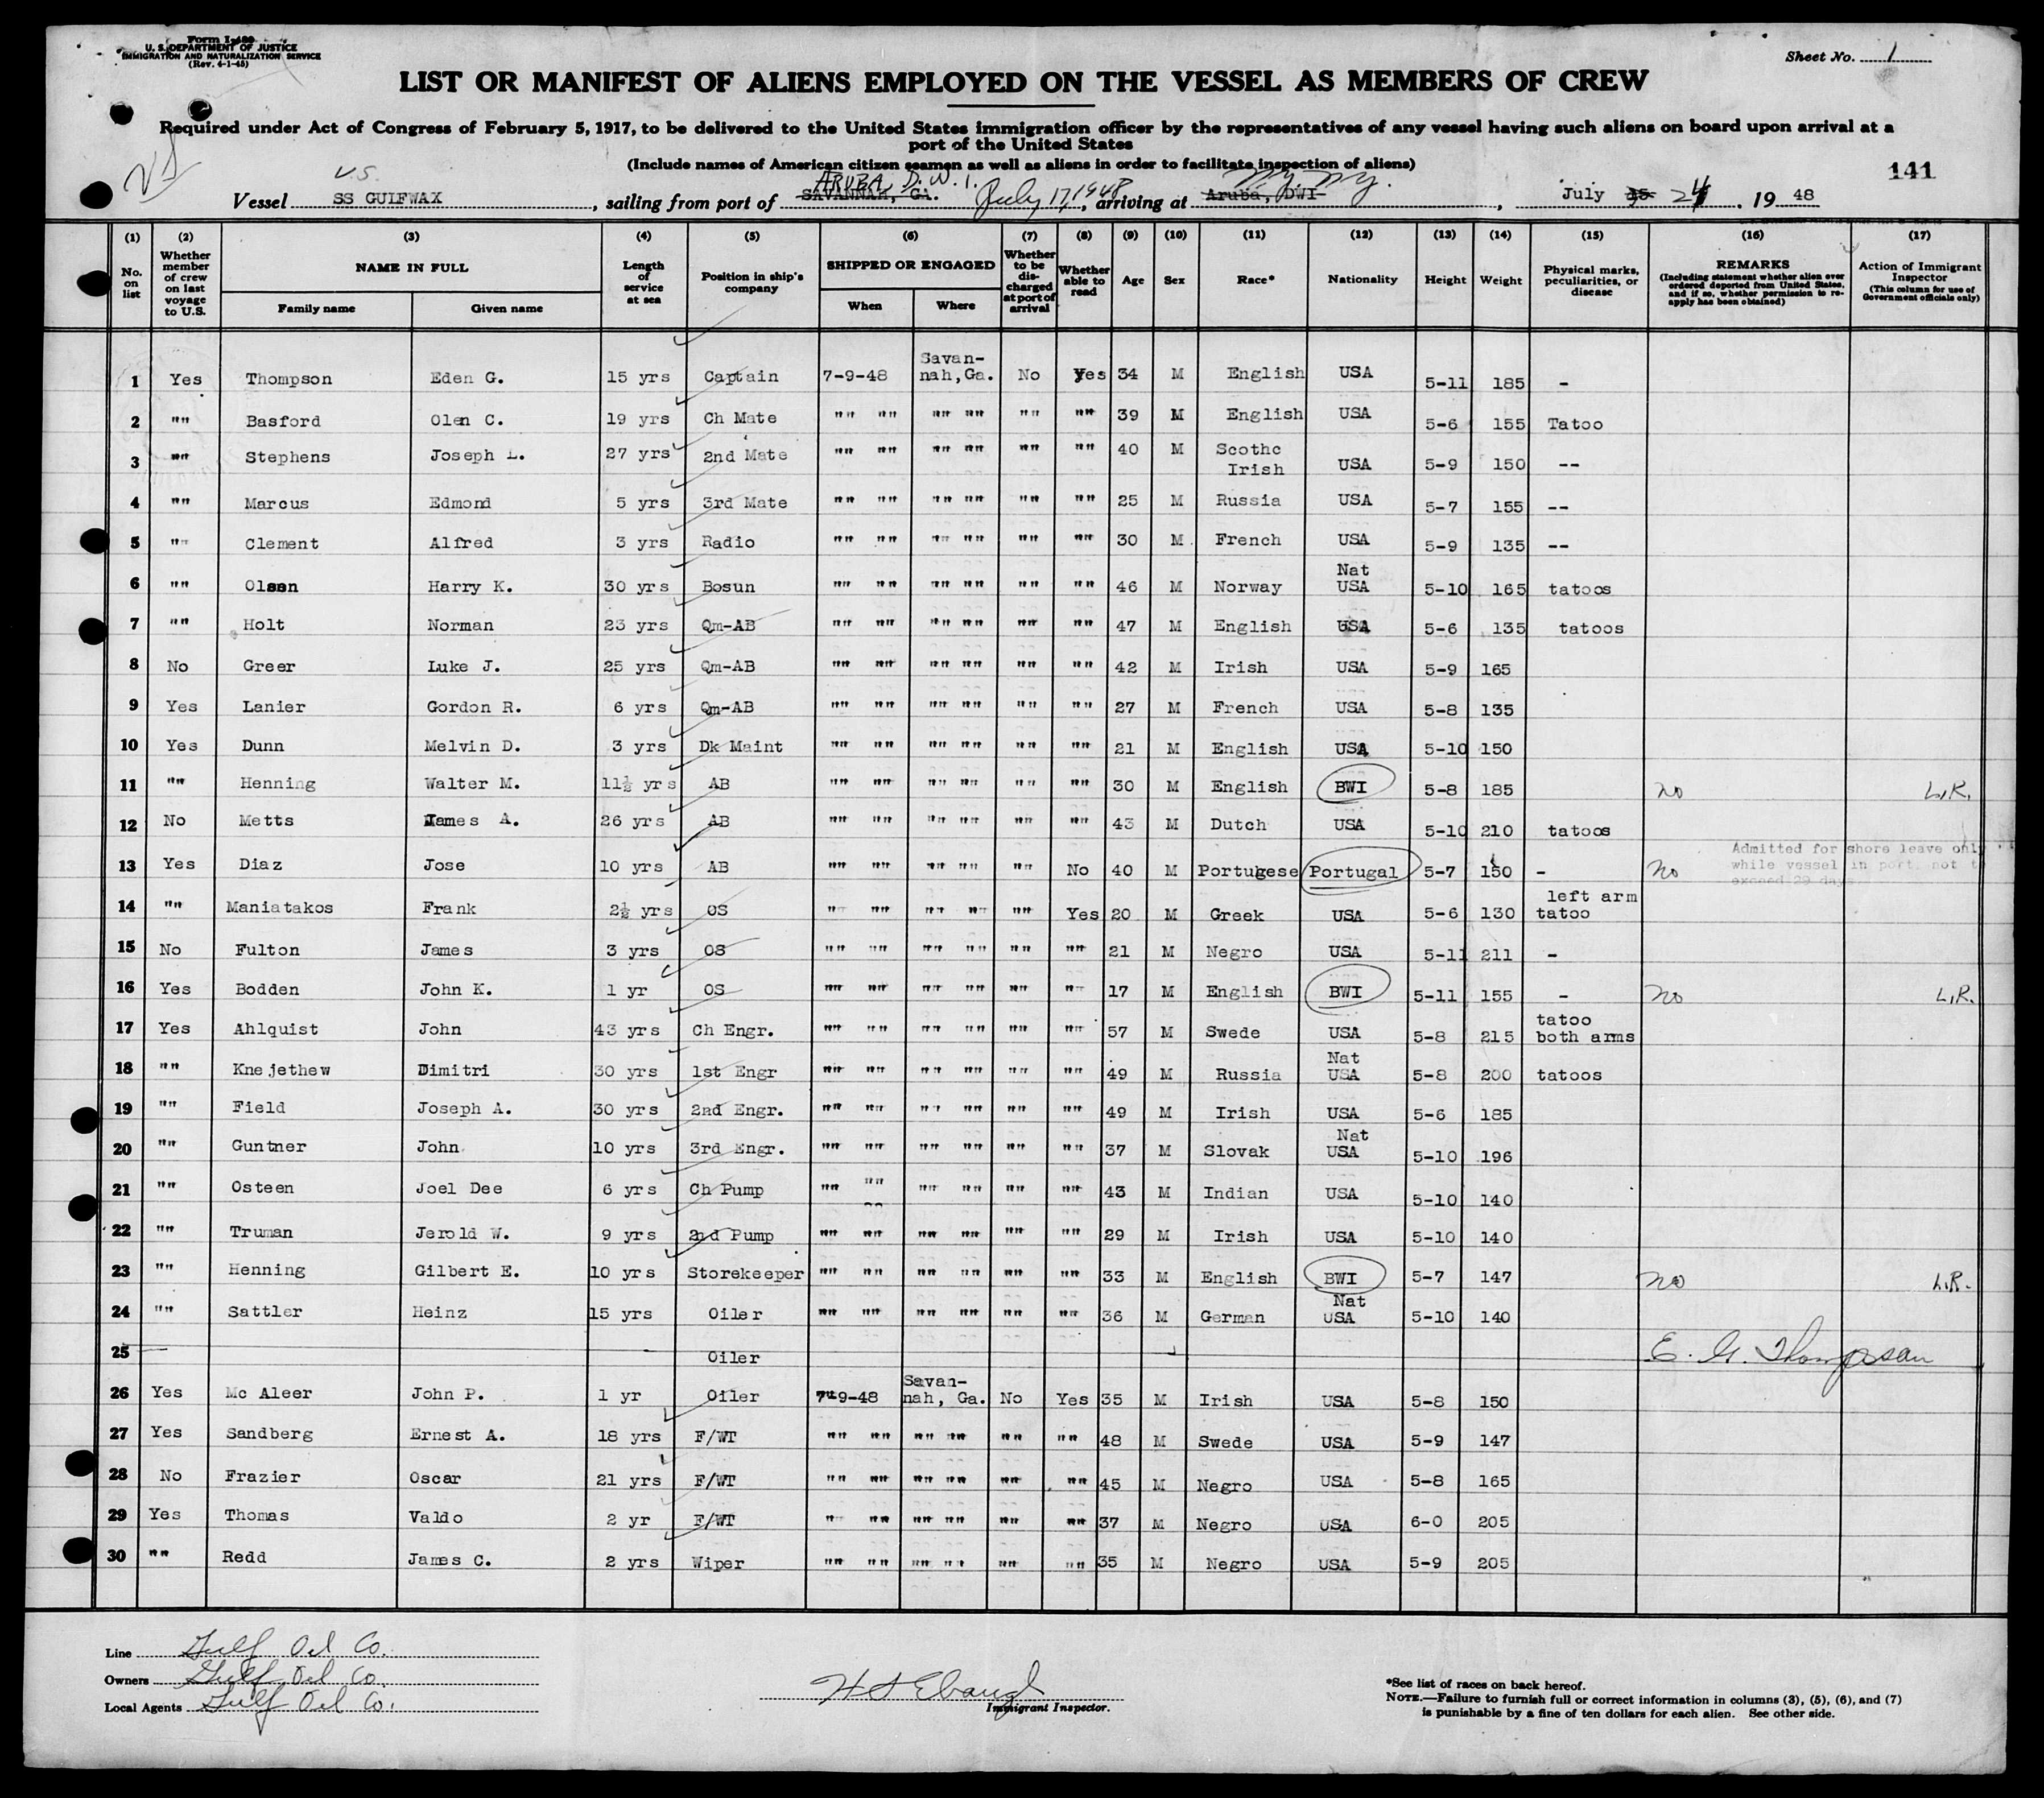 Form I-480
U. S. DEPARTMENT OF JUSTICE
IMMIGRATION AND NATURALIZATION SERVICE
(Rev. 4-1-45)
Sheet No. 1
LIST OR MANIFEST OF ALIENS EMPLOYED ON THE VESSEL AS MEMBERS OF CREW
Required under Act of Congress of February 5, 1917, to be delivered to the United States immigration officer by the representatives of any vessel having such aliens on board upon arrival at a
port of the United States
(Include names of American citizen seamen as well as aliens in order to facilitate inspection of aliens)
141
U.S. ARUBA, D.W.I. N.Y. N.Y.
Vessel SS GULFWAX, sailing from port of SAVANNAH, GA. July 17, 1948, arriving at Aruba, DWI, July 15 24, 1948
(1) (2) (3) (4) (5) (6) (7) (8) (9) (10) (11) (12) (13) (14) (15) (16) (17)
No. on list Whether member of crew on last voyage to U.S. NAME IN FULL Family name Given name Length of service at sea Position in ship's company SHIPPED OR ENGAGED When Where Whether to be discharged at port of arrival Whether able to read Age Sex Race* Nationality Height Weight Physical marks, peculiarities, or disease REMARKS (Including statement whether alien ever ordered deported from United States, and if so, whether permission to re-apply has been obtained) Action of Immigrant Inspector (This column for use of Government officials only)
1 Yes Thompson Eden G. 15 yrs Captain 7-9-48 Savan-nah, Ga. No Yes 34 M English USA 5-11 185 -
2 "" Basford Olen C. 19 yrs Ch Mate "" "" "" "" "" "" 39 M English USA 5-6 155 Tatoo
3 "" Stephens Joseph L. 27 yrs 2nd Mate "" "" "" "" "" "" 40 M Scothc Irish USA 5-9 150 --
4 "" Marcus Edmond 5 yrs 3rd Mate "" "" "" "" "" "" 25 M Russia USA 5-7 155 --
5 "" Clement Alfred 3 yrs Radio "" "" "" "" "" "" 30 M French USA 5-9 135 --
6 "" Olsen Harry K. 30 yrs Bosun "" "" "" "" "" "" 46 M Norway Nat USA 5-10 165 tatoos
7 "" Holt Norman 23 yrs Qm-AB "" "" "" "" "" "" 47 M English USA 5-6 135 tatoos
8 No Greer Luke J. 25 yrs Qm-AB "" "" "" "" "" "" 42 M Irish USA 5-9 165
9 Yes Lanier Gordon R. 6 yrs Qm-AB "" "" "" "" "" "" 27 M French USA 5-8 135
10 Yes Dunn Melvin D. 3 yrs Dk Maint "" "" "" "" "" "" 21 M English USA 5-10 150
11 "" Henning Walter M. 11½ yrs AB "" "" "" "" "" "" 30 M English BWI 5-8 185 no L.R.
12 No Metts James A. 26 yrs AB "" "" "" "" "" "" 43 M Dutch USA 5-10 210 tatoos
13 Yes Diaz Jose 10 yrs AB "" "" "" "" "" No 40 M Portugese Portugal 5-7 150 - no Admitted for shore leave only while vessel in port, not to exceed 29 days
14 "" Maniatakos Frank 2½ yrs OS "" "" "" "" "" Yes 20 M Greek USA 5-6 130 left arm tatoo
15 No Fulton James 3 yrs OS "" "" "" "" "" "" 21 M Negro USA 5-11 211 -
16 Yes Bodden John K. 1 yr OS "" "" "" "" "" "" 17 M English BWI 5-11 155 - no L.R.
17 Yes Ahlquist John 43 yrs Ch Engr. "" "" "" "" "" "" 57 M Swede USA 5-8 215 tatoo both arms
18 "" Knejethew Dimitri 30 yrs 1st Engr "" "" "" "" "" "" 49 M Russia Nat USA 5-8 200 tatoos
19 "" Field Joseph A. 30 yrs 2nd Engr. "" "" "" "" "" "" 49 M Irish USA 5-6 185
20 "" Guntner John 10 yrs 3rd Engr. "" "" "" "" "" "" 37 M Slovak Nat USA 5-10 196
21 "" Osteen Joel Dee 6 yrs Ch Pump "" "" "" "" "" "" 43 M Indian USA 5-10 140
22 "" Truman Jerold W. 9 yrs 2nd Pump "" "" "" "" "" "" 29 M Irish USA 5-10 140
23 "" Henning Gilbert E. 10 yrs Storekeeper "" "" "" "" "" "" 33 M English BWI 5-7 147 no L.R.
24 "" Sattler Heinz 15 yrs Oiler "" "" "" "" "" "" 36 M German Nat USA 5-10 140
25 Oiler E. G. Thompson
26 Yes Mc Aleer John P. 1 yr Oiler 7-9-48 Savan-nah, Ga. No Yes 35 M Irish USA 5-8 150
27 Yes Sandberg Ernest A. 18 yrs F/WT "" "" "" "" "" "" 48 M Swede USA 5-9 147
28 No Frazier Oscar 21 yrs F/WT "" "" "" "" "" "" 45 M Negro USA 5-8 165
29 Yes Thomas Valdo 2 yr F/WT "" "" "" "" "" "" 37 M Negro USA 6-0 205
30 "" Redd James C. 2 yrs Wiper "" "" "" "" "" "" 35 M Negro USA 5-9 205
Line Gulf Oil Co.
Owners Gulf Oil Co.
Local Agents Gulf Oil Co.
Immigrant Inspector.
*See list of races on back hereof.
NOTE.—Failure to furnish full or correct information in columns (3), (5), (6), and (7)
is punishable by a fine of ten dollars for each alien. See other side.